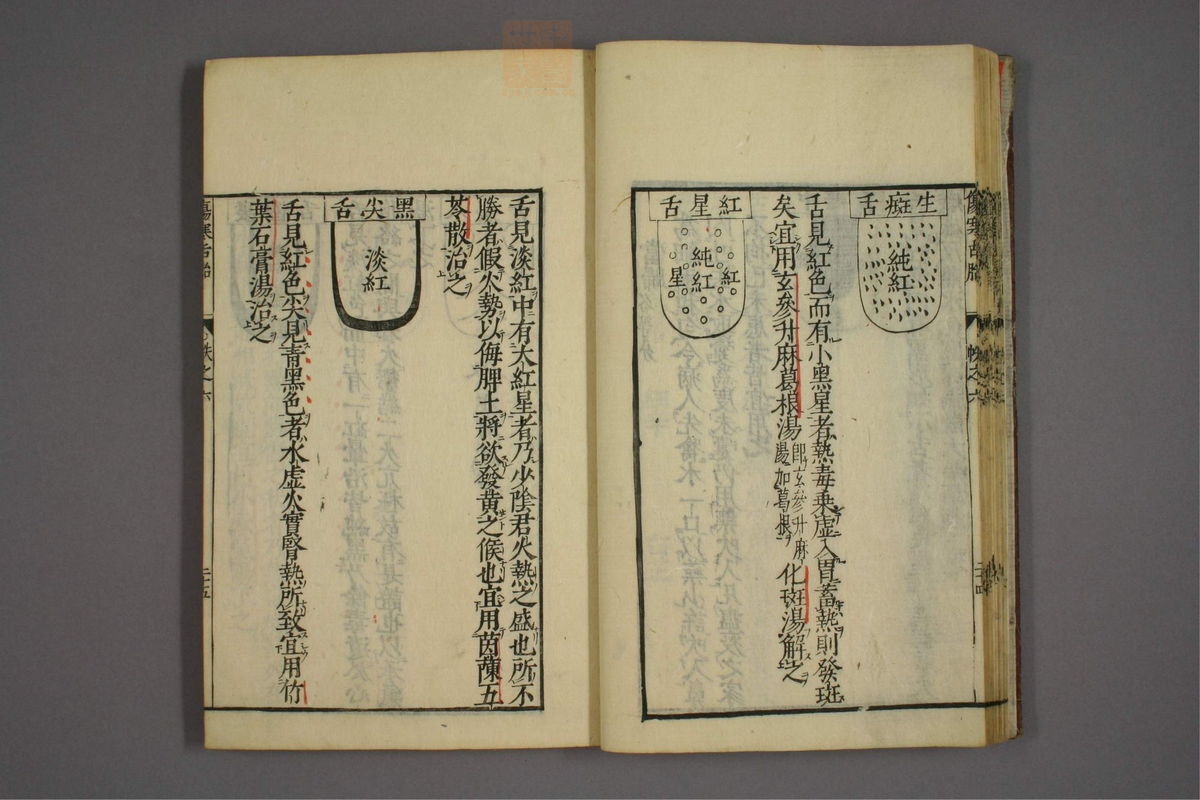 生癍舌
純紅
舌見紅色而有小黑星者熱毒乗虚入胃蓄熱則發斑
矣宜用玄參升麻葛根湯即玄參升麻湯加葛根化斑湯解之
紅星舌
純紅
紅
星
舌見淡紅中有大紅星者乃少陰君火熱之盛也所不
勝者假火勢以侮脾土將欲發黄之候也宜用茵蔯五
苓散治之
黑尖舌
淡紅
舌見紅色尖見青黑色者水虚火實腎熱所致宜用竹
葉石膏湯治之
帙之六
二十五